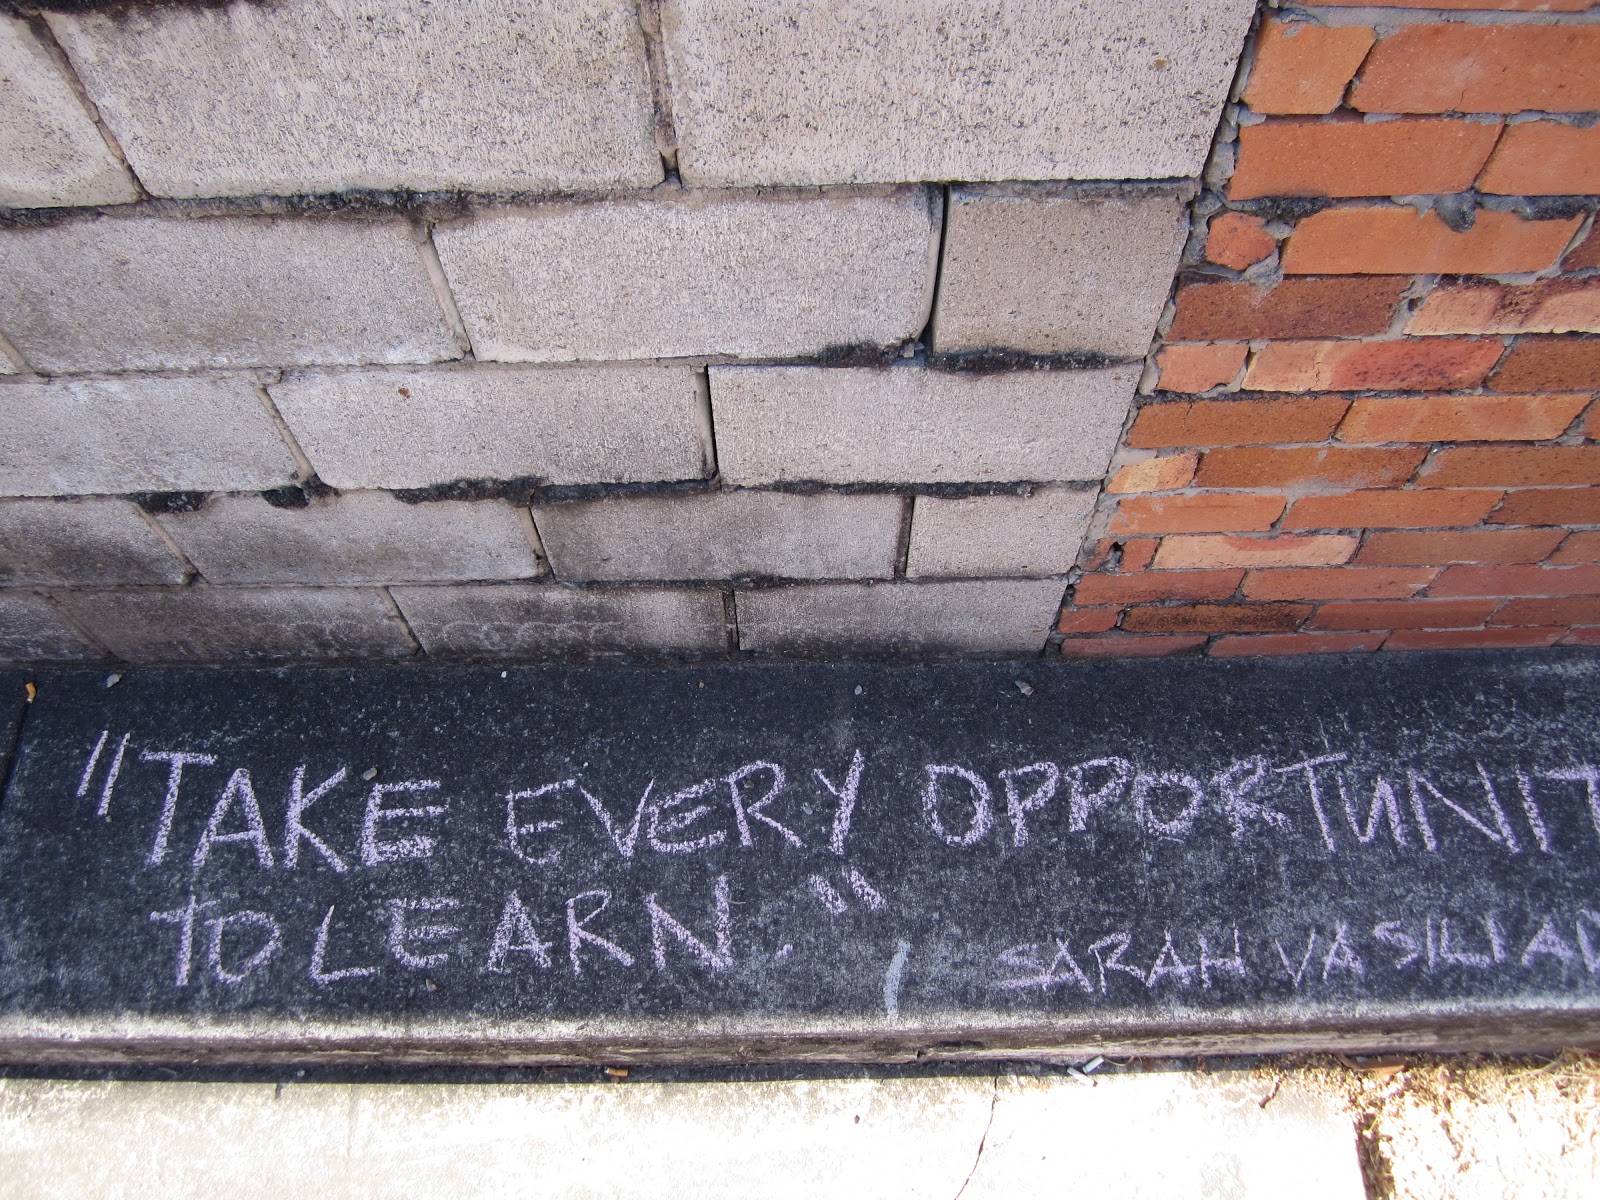 "TAKE EVERY OPPORTUNIT
TO LEARN."
SARAH VASILIAD